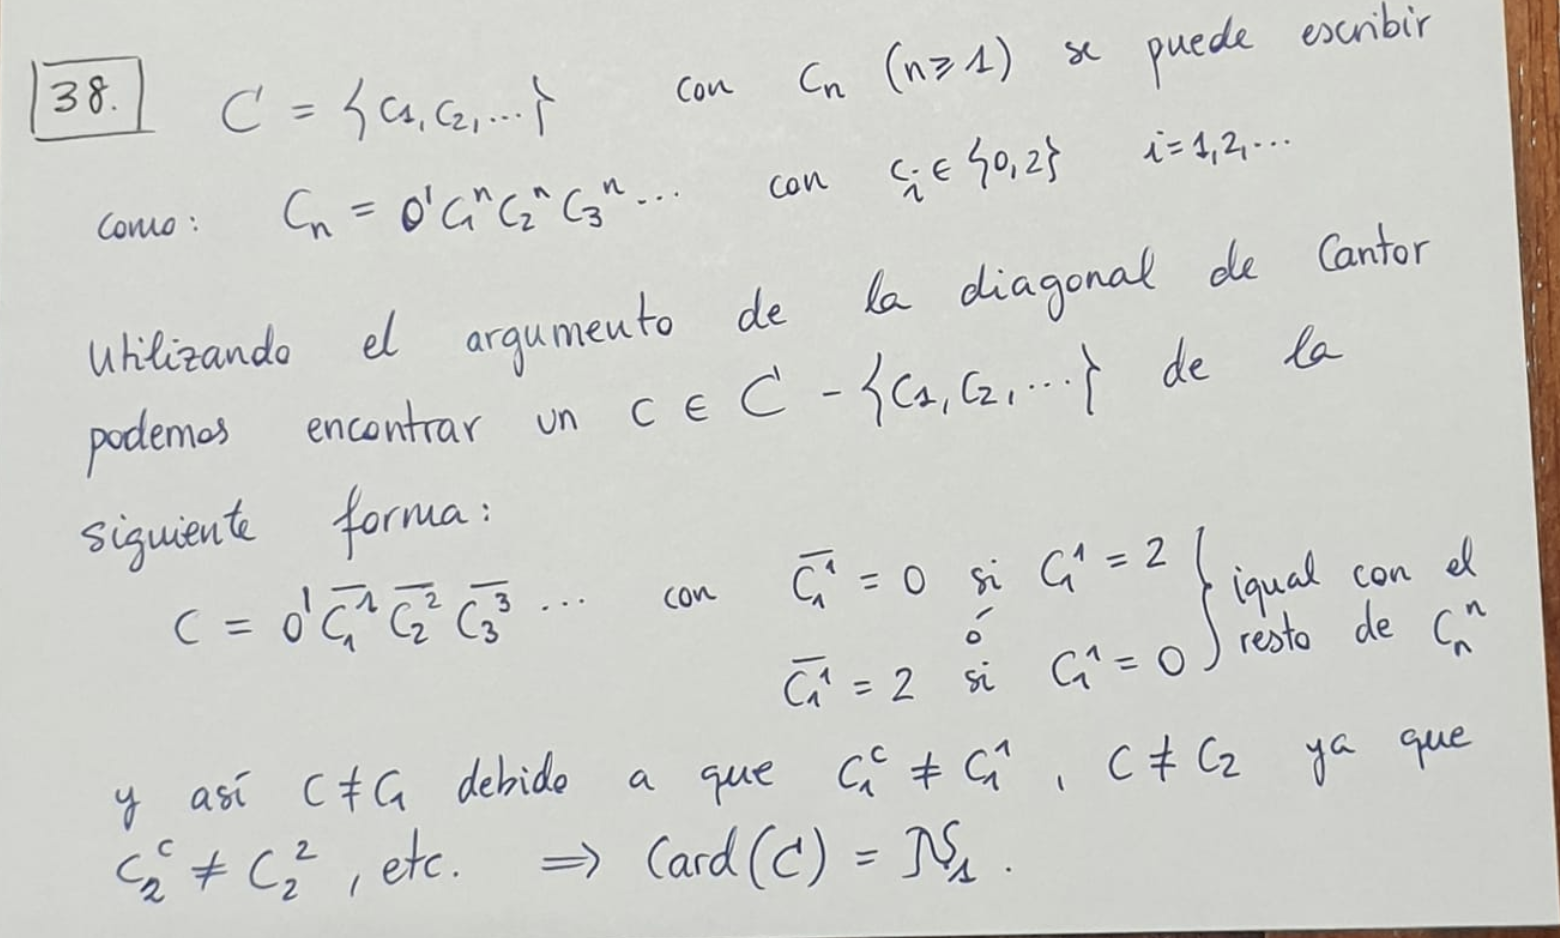 38. C = {C₁, C₂, ...} con Cₙ (n ≥ 1) se puede escribir
como: Cₙ = 0'C₁ⁿ C₂ⁿ C₃ⁿ ... con Cᵢ ∈ {0,2} i=1,2,...
Utilizando el argumento de la diagonal de Cantor
podemos encontrar un C ∈ C - {C₁, C₂, ...} de la
siguiente forma:
C = 0'C̅₁¹ C̅₂² C̅₃³ ... con C̅₁¹ = 0 si C₁¹ = 2 } igual con el
ó
C̅₁¹ = 2 si C₁¹ = 0 } resto de Cₙⁿ
y así C ≠ C₁ debido a que C₁ᶜ ≠ C₁¹, C ≠ C₂ ya que
C₂ᶜ ≠ C₂², etc. ⇒ Card(C) = ℵ₁.